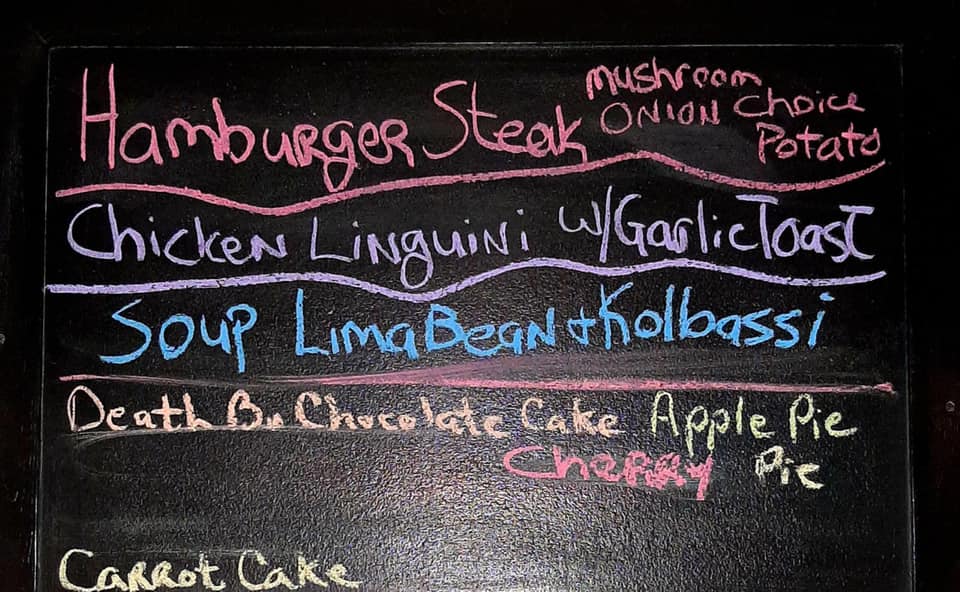 Hamburger Steak mushroom ONION Choice Potato
Chicken Linguini w/Garlic Toast
Soup Lima Bean & Kolbassi
Death By Chocolate Cake Apple Pie
Cherry Pie
Carrot Cake